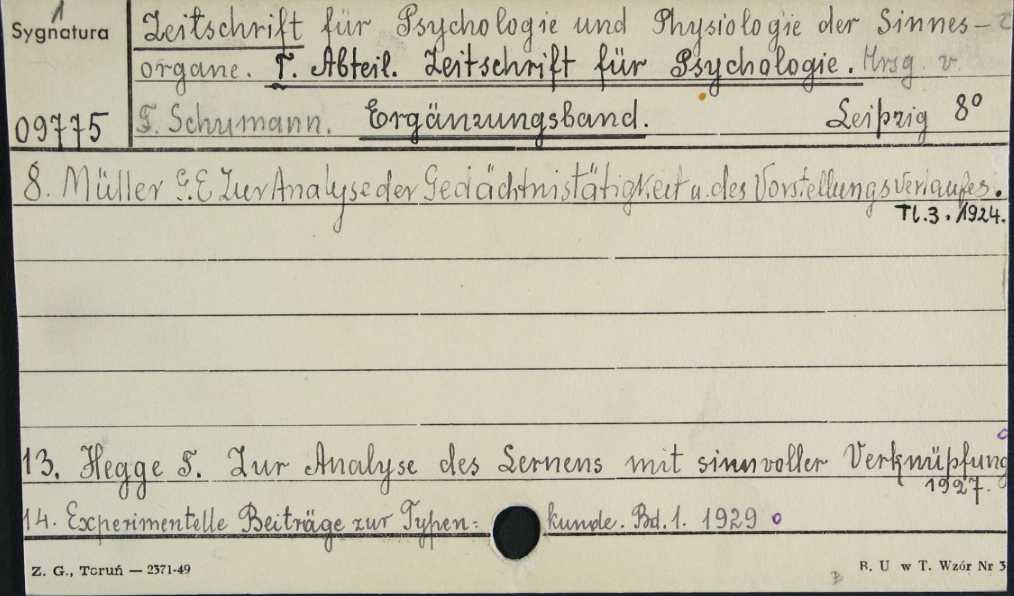 1
Sygnatura
09775
Zeitschrift für Psychologie und Physiologie der Sinnes-
organe. I. Abteil. Zeitschrift für Psychologie. Hrsg. v.
F. Schumann. Ergänzungsband. Leipzig 8°
8. Müller G.E Zur Analyse der Gedächtnistätigkeit u. des Vorstellungsverlaufes.
Tl.3. 1924.
13. Hegge F. Zur Analyse des Lernens mit sinnvoller Verknüpfung
1927.
14. Experimentelle Beiträge zur Typen= kunde. Bd. 1. 1929
Z. G., Toruń — 2371-49
R. U w T. Wzór Nr 3